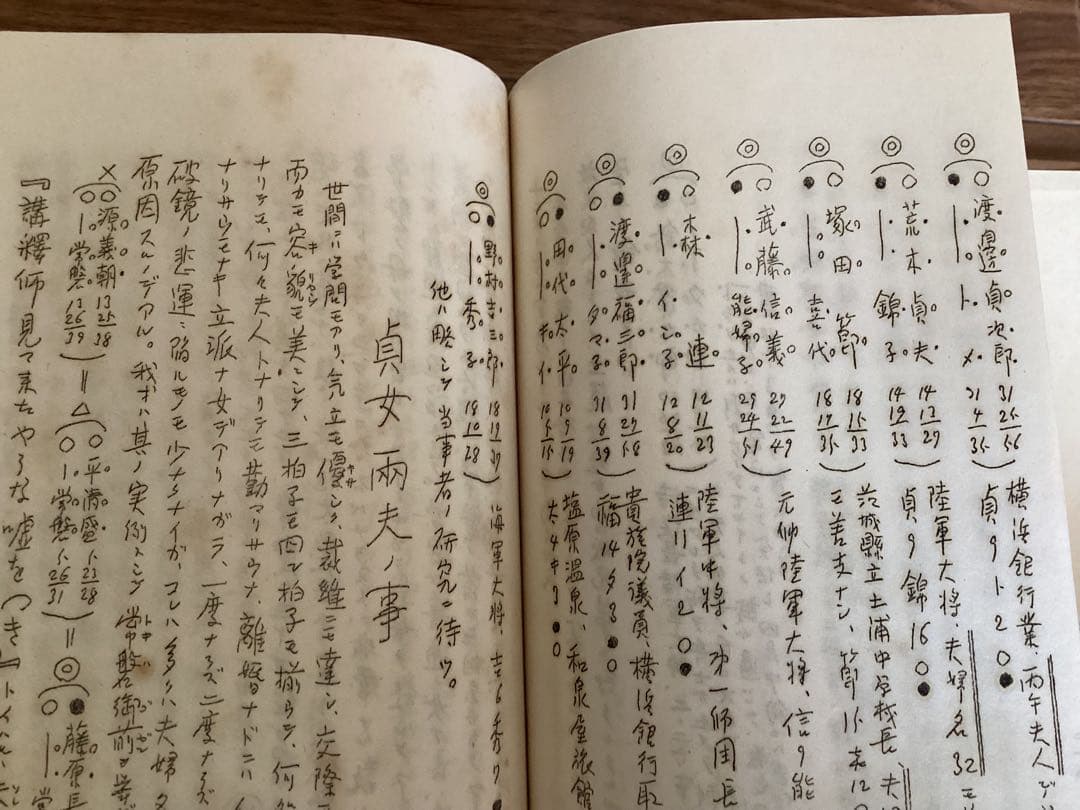 渡邊貞次郎 31 25 56
ト メ 31 4 35
横浜銀行業、丙午夫人デ
貞9ト20●
荒木貞夫 14 13 27
錦子 14 19 33
陸軍大将、夫婦名32モ
貞9錦16○●
塚田節 18 15 33
喜代 18 17 35
茨城縣立土浦中学校長、夫
武藤信義 27 22 49
能婦子 27 24 51
元帥陸軍大将、信9能
森連 12 11 23
イン子 12 8 20
陸軍中将、第一師団長
連11イ2○●
渡邊福三郎 31 27 58
タマ子 31 8 39
貴族院議員、横浜銀行取
福14タ3●○
田代太平 10 9 19
キイ 10 5 15
塩原温泉、和泉屋旅館
太4キ3●○
野村吉三郎 18 19 37
秀子 18 10 28
海軍大将、吉6秀7
他ハ略シテ当事者ノ研究ニ待ツ。
貞女兩夫ノ事
世間ニハ学問モアリ、気立モ優シク、裁縫ニモ達シ、交際
而カモ容貌モ美ニシテ、三拍子モ四ツ拍子モ揃ラテ、何
ナリテモ、何々夫人トナリテモ勤マリサウナ、離婚ナドニハ
ナリサウモナキ立派ナ女デアリナガラ、一度ナラズ二度ナラズ
破鏡ノ悲運ニ陥ルモノモ少ナクナイガ、コレハ多クハ夫婦
原因スルノデアル。我オハ其ノ実例トシテ常磐御前
源義朝 13 25 38
常磐 13 26 39
平清盛 5 23 28
常磐 5 26 31
藤原長
『講釋師見て来たやうな嘘をつき』トイ